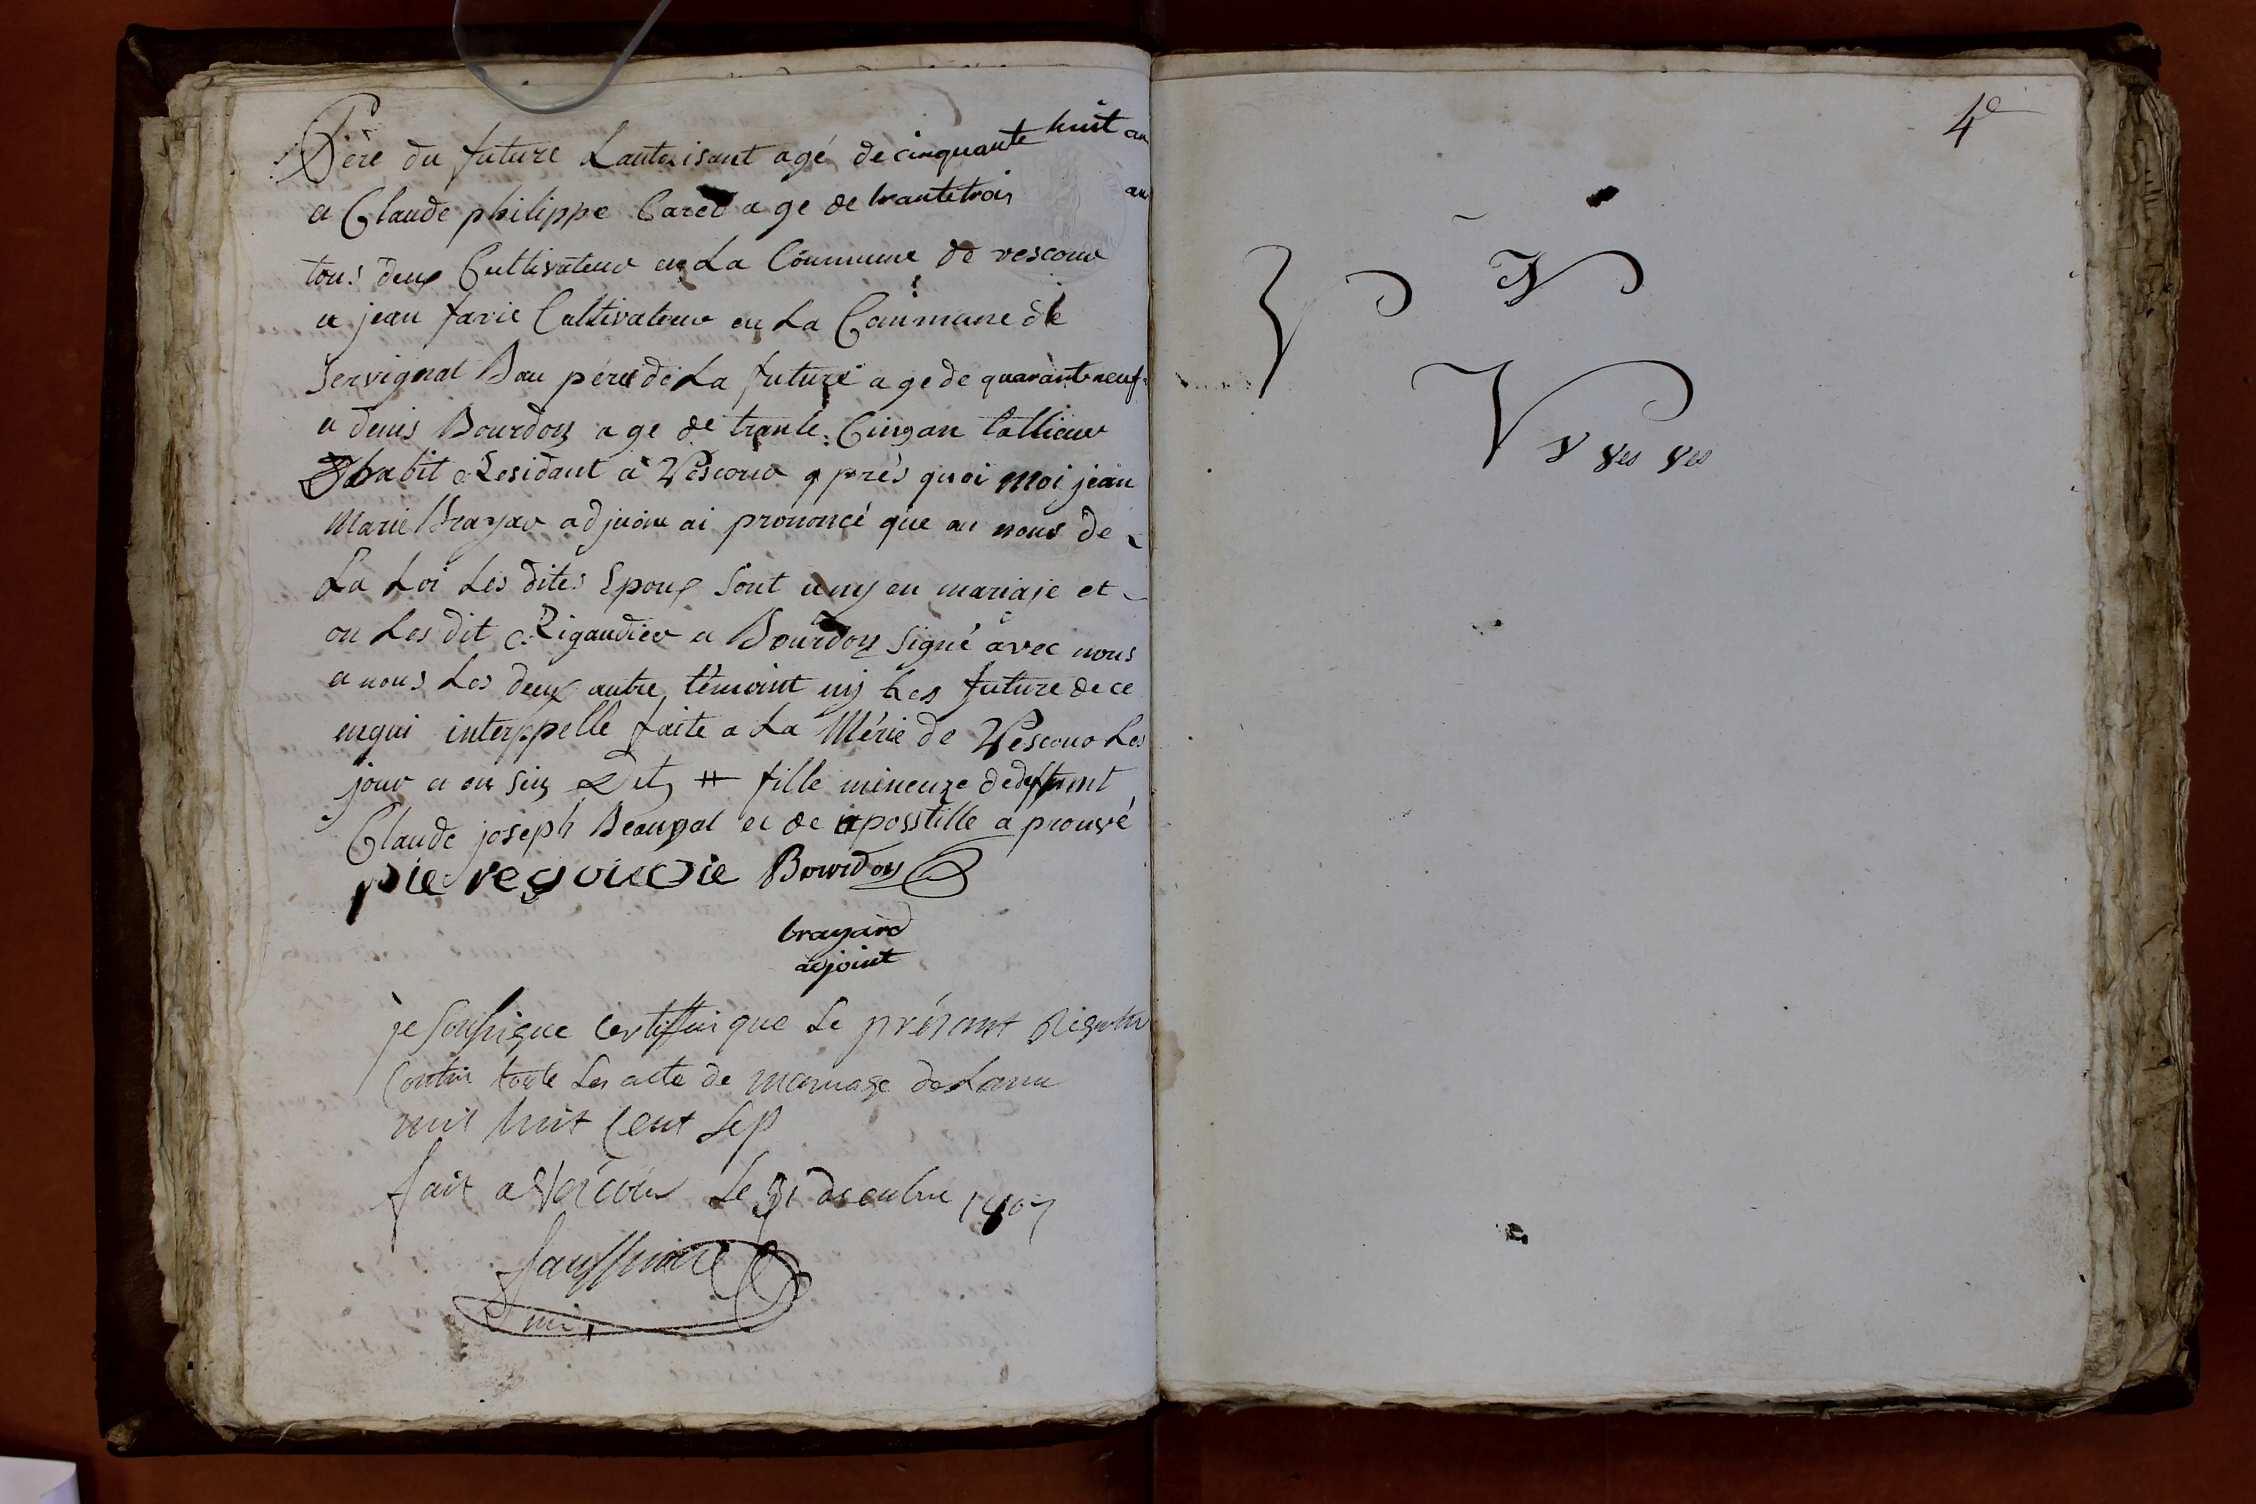 Père du future Lautorisant agé de cinquante huit an
a Claude philippe Cared age de trantetrois an
tous deux Cultivateur en La Commune de vescour
a jean favie Cultivateur en La Commune de
Servignat Bau père de La future age de quarante neuf
a denis Bourdon age de trante Cinq an tallieur
Dhabit Residant à Vescour apprès quoi moi jean
Marie Brayar adjoin ai prononcé que au nous de
La Loi Les dites Epoux Sont uny en mariaje et
on Les dit Rigaudier a Bourdon Signé avec nous
a nous Les deux autre témoint ny Les future de ce
enqui interppelle faite a La Mérie de Vescour Les
jour a an Sus Dit # fille mineure de deffunt
Claude joseph Beaupal et de apposstille a prouvé
pie regoudie Bourdon
brayard
adjoint
je Soussigne Certiffie que Le présant Registre
Contien toute Les acte de mariage de Lanne
mil huit Cent Sep
fait a Vescour Le 31 decembre 1807
4e